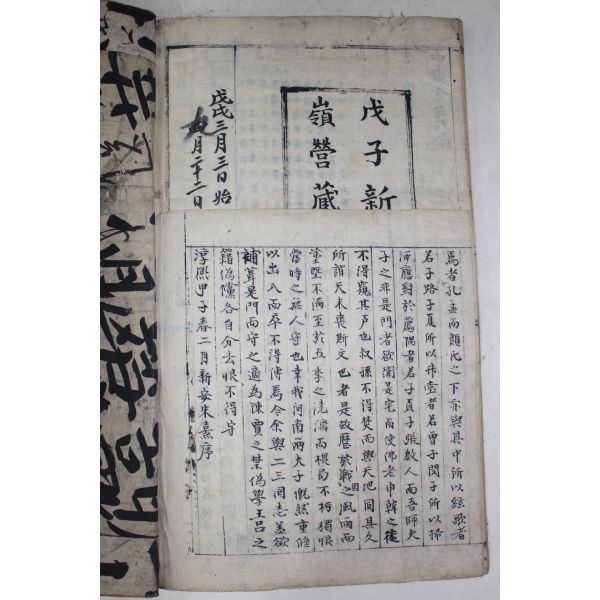 戊子新
嶺營藏
戊戌三月三日始
月二十二日
焉者孔孟而顔氏之下亦與其中所以絃歌者
若子路子夏所以升堂者若曾子閔子所以掃
洒應對於薦隅者若子貢子張數人而吾師夫
子之非是門者欲衛是宅而使佛老申韓之徒
不得窺其戶也叔孫不得焚而與天地同其久
所謂天未喪斯文也者是故歷於戰國之風雨而
塗墍不漏至於五季之澆漓而棖扃不朽獨恨
當時之無人守也幸我河南兩夫子慨然重修
以出入而卒不得傳焉今余與二三同志並欲
補葺是門而守之適為陳賈之禁偽學王呂之
籍偽黨各自分去恨不得守
淳熙甲子春二月新安朱熹序